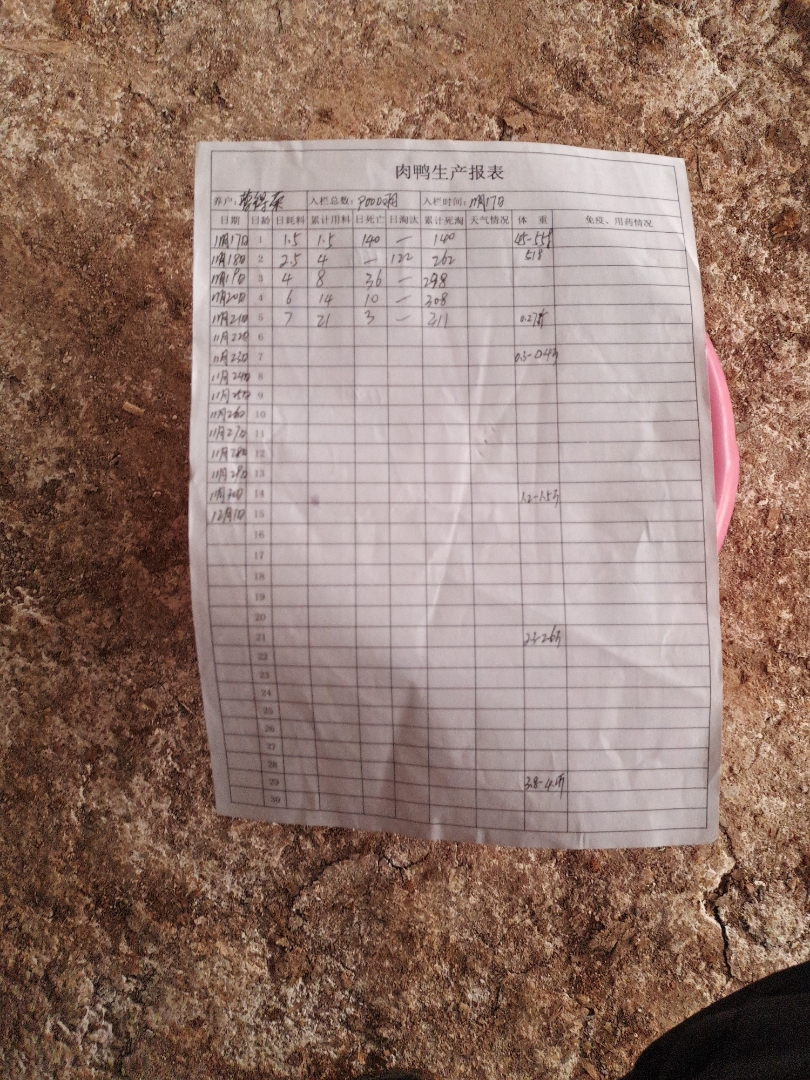 肉鸭生产报表
养户: 入栏总数:9000羽 入栏时间:11月17日
日期 日龄 日耗料 累计用料 日死亡 日淘汰 累计死淘 天气情况 体 重 免疫、用药情况
11月17日 1 1.5 1.5 140 — 140 45-55g
11月18日 2 2.5 4 — 122 262 51g
11月19日 3 4 8 36 — 298
11月20日 4 6 14 10 — 308
11月21日 5 7 21 3 — 311 0.27斤
11月22日 6
11月23日 7 0.3-0.4斤
11月24日 8
11月25日 9
11月26日 10
11月27日 11
11月28日 12
11月29日 13
11月30日 14 1.2-1.5斤
12月1日 15
16
17
18
19
20
21 2.3-2.6斤
22
23
24
25
26
27
28
29 3.8-4斤
30